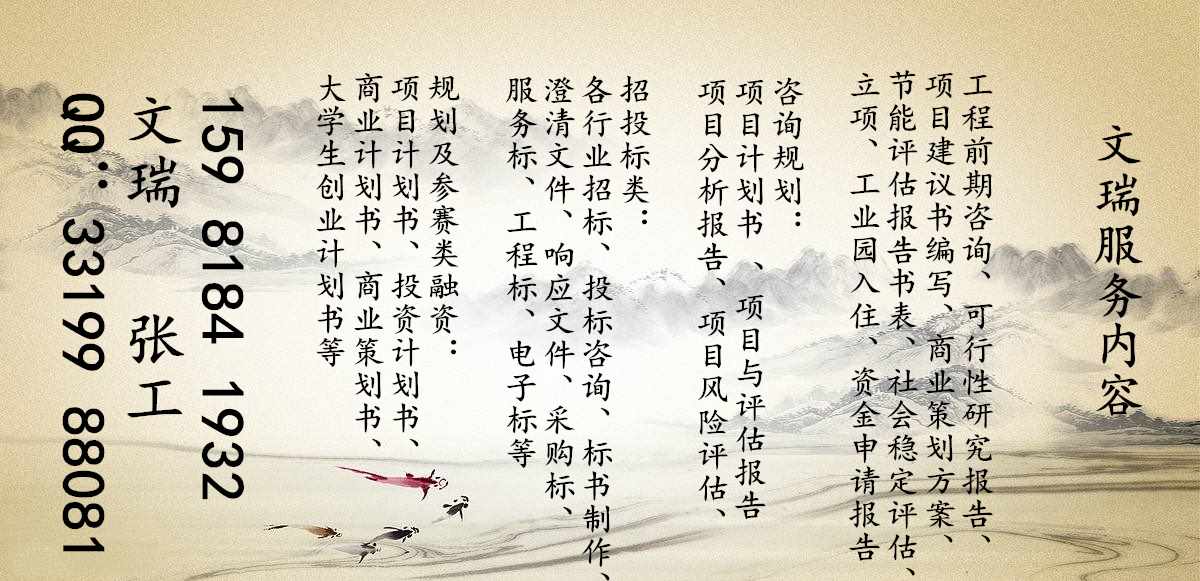 文瑞服务内容
工程前期咨询、可行性研究报告、
项目建议书编写、商业策划方案、
节能评估报告书表、社会稳定评估、
立项、工业园入住、资金申请报告
咨询规划：
项目计划书、项目与评估报告
项目分析报告、项目风险评估、
招投标类：
各行业招标、投标咨询、标书制作、
澄清文件、响应文件、采购标、
服务标、工程标、电子标等
规划及参赛类融资：
项目计划书、投资计划书、
商业计划书、商业策划书、
大学生创业计划书等
159 8184 1932
文瑞 张工
QQ：33199 88081